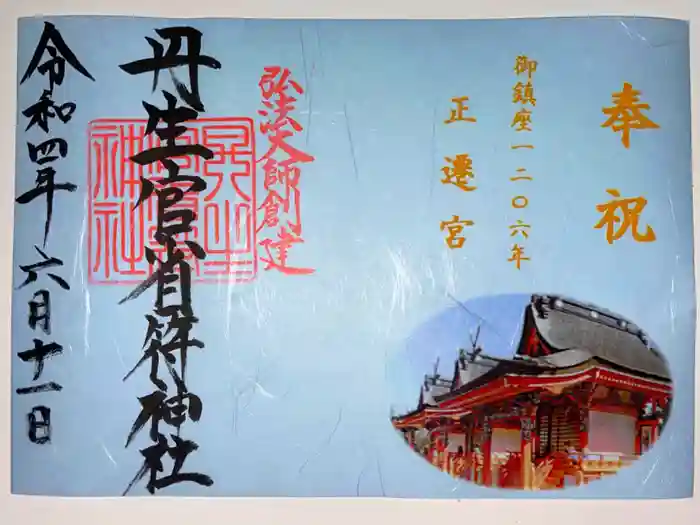 奉祝
御鎮座一二〇六年
正遷宮
弘法大師創建
丹生官省符神社
令和四年六月十一日